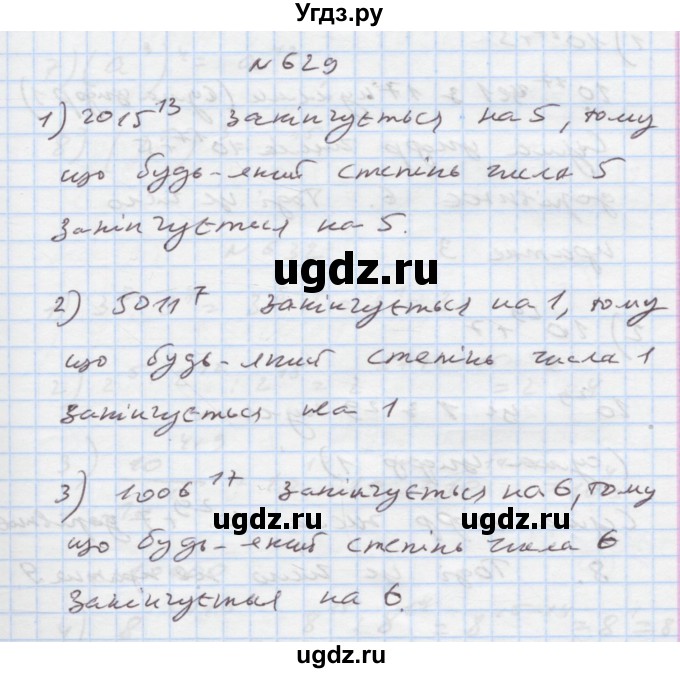 Угдз.ру
№ 629
1) 2015¹³ закінчується на 5, тому
що будь-який степінь числа 5
закінчується на 5.
ugdz.ru
2) 5011⁷ закінчується на 1, тому
що будь-який степінь числа 1
закінчується на 1
3) 1006¹⁷ закінчується на 6, тому
ugdz.ru ugdz.ru
що будь-який степінь числа 6
закінчується на 6.
ugdz.ru